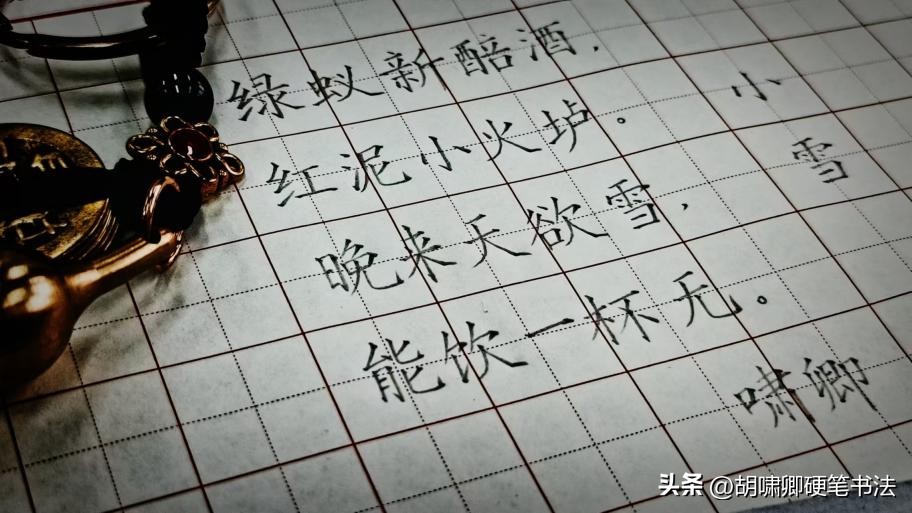 绿蚁新醅酒，
红泥小火垆。
晚来天欲雪，
能饮一杯无。
小雪
啸卿
头条 @胡啸卿硬笔书法